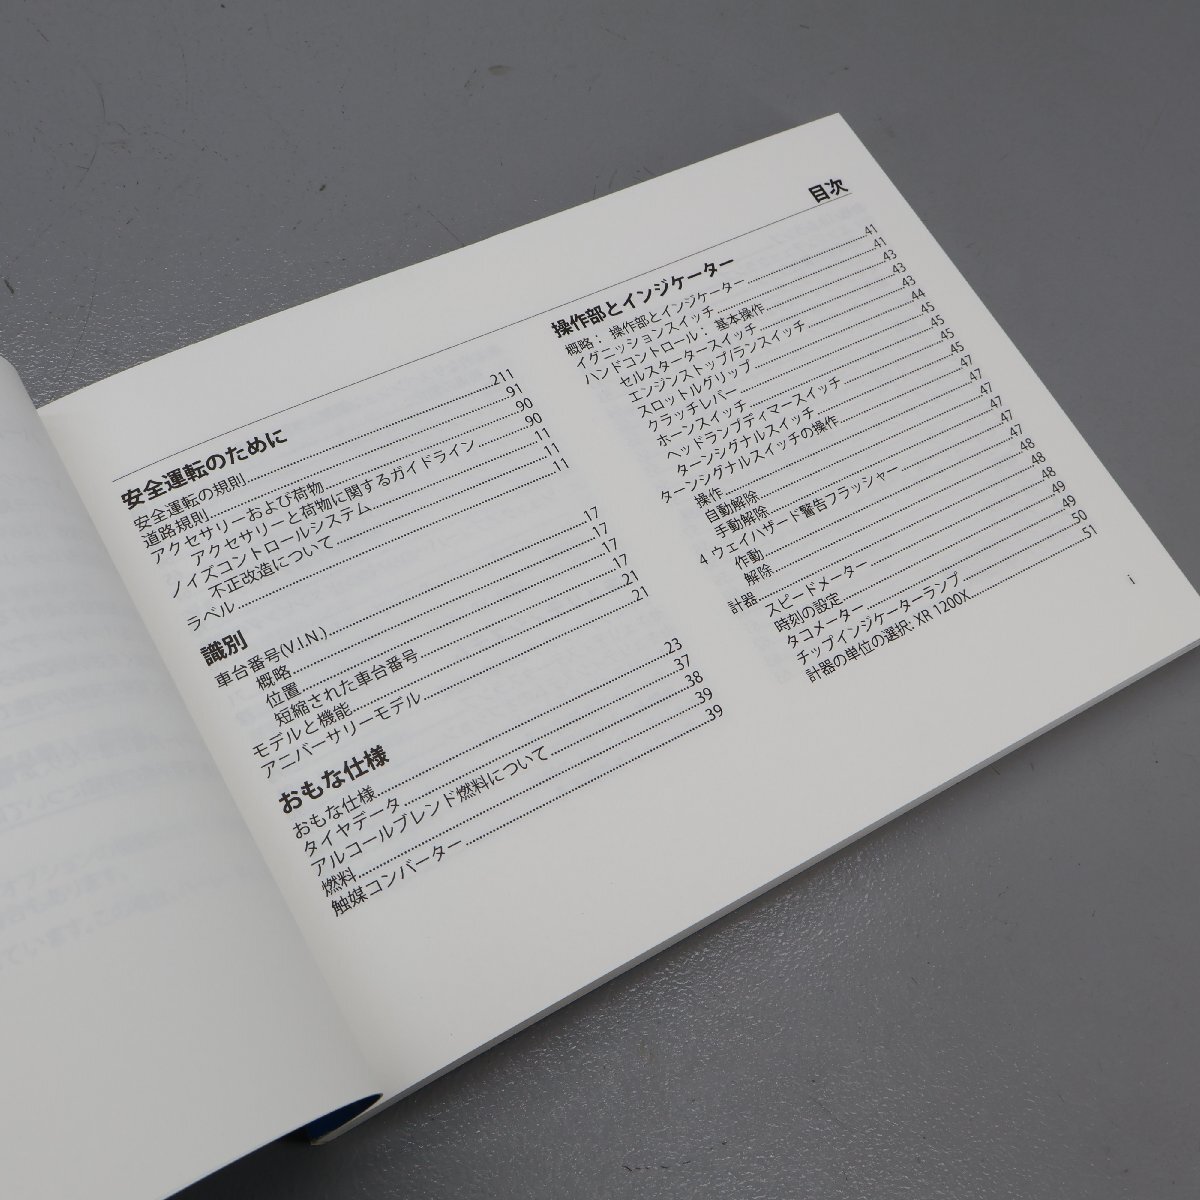 目次
安全運転のために
安全運転の規則 211
道路規則 91
アクセサリーおよび荷物 90
アクセサリーと荷物に関するガイドライン 90
ノイズコントロールシステム 11
不正改造について 11
ラベル 11
識別
車台番号(V.I.N.) 17
概略 17
位置 17
短縮された車台番号 17
モデルと機能 21
アニバーサリーモデル 21
おもな仕様
おもな仕様 23
タイヤデータ 37
アルコールブレンド燃料について 38
燃料 39
触媒コンバーター 39
操作部とインジケーター
概略： 操作部とインジケーター 41
イグニッションスイッチ 41
ハンドコントロール： 基本操作 43
セルスタータースイッチ 43
エンジンストップ/ランスイッチ 43
スロットルグリップ 44
クラッチレバー 45
ホーンスイッチ 45
ヘッドランプディマースイッチ 45
ターンシグナルスイッチ 45
ターンシグナルスイッチの操作 47
操作 47
自動解除 47
手動解除 47
4 ウェイハザード警告フラッシャー 47
作動 47
解除 48
計器 48
スピードメーター 48
時刻の設定 49
タコメーター 49
チップインジケーターランプ 50
計器の単位の選択: XR 1200X 51
i